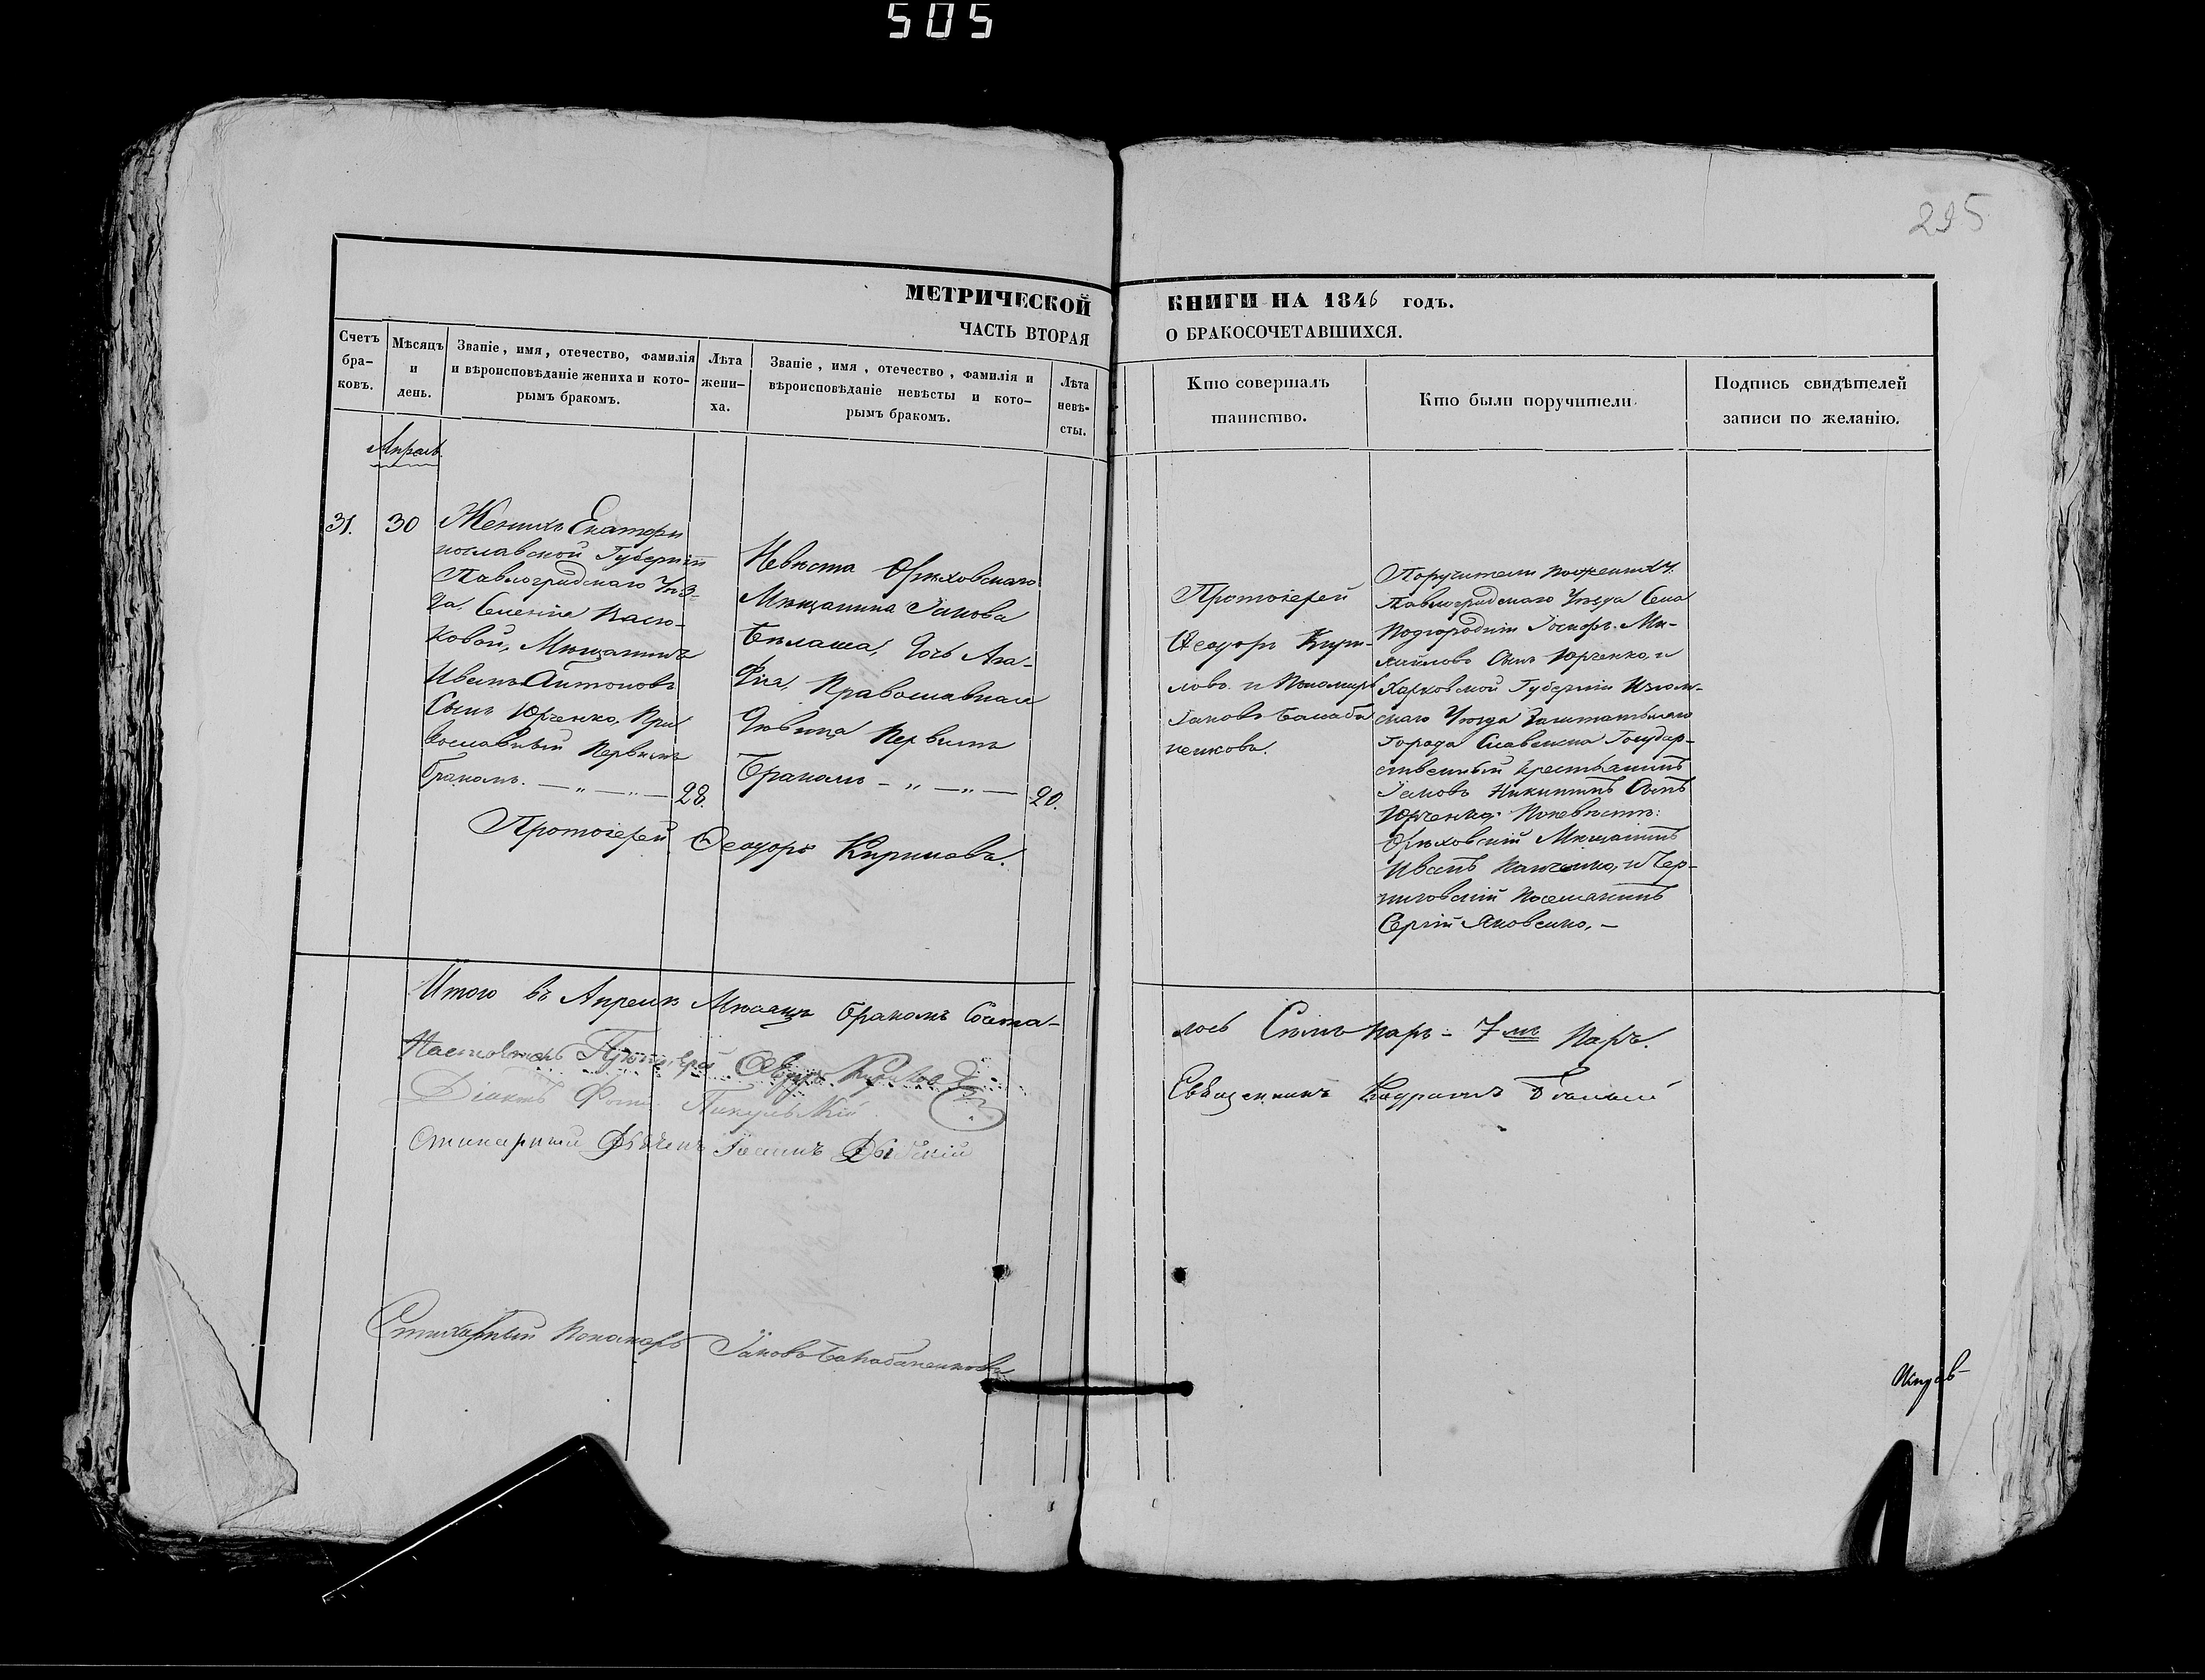 505
295
МЕТРИЧЕСКОЙ
ЧАСТЬ ВТОРАЯ
КНИГИ НА 1846 годъ.
О БРАКОСОЧЕТАВШИХСЯ.
Счетъ бра-ковъ.
Мѣсяцъ и день.
Званіе, имя, отечество, фамилія
и вѣроисповѣданіе жениха и кото-
рымъ бракомъ.
Лѣта жени-ха.
Званіе, имя, отечество, фамилія и
вѣроисповѣданіе невѣсты и кото-
рымъ бракомъ.
Лѣта невѣ-сты.
Кто совершалъ
таинство.
Кто были поручители.
Подпись свидѣтелей
записи по желанію.
Апрель
31.
30
Женихъ Екатери
нославской Губерніи
Павлоградскаго Уѣз-
да, Селенія Васю-
ковой, Мѣщанинъ
Иванъ Антоновъ
Сынъ Юрченко, Пра
вославный Первымъ
Бракомъ. — „ — „ —
28.
Невѣста Орѣховскаго
Мѣщанина Іакова
Бѣлаша, дочь Ага-
фія, Православная
Дѣвица Первымъ
Бракомъ — „ — „ —
20.
Протоіерей Ѳеодоръ Кириловъ.
Протоіерей
Ѳеодоръ Кири-
ловъ и Пономарь
Іаковъ Балаба
ненковъ.
Поручители по женихѣ:
Павлоградскаго Уѣзда Села
Подгородніи Іосифъ Ми-
хайловъ Сынъ Юрченко, и
Харковской Губерніи Изюм-
скаго Уѣзда Заштатнаго
города Славенска Государ-
ственный крестьянинъ
Іаковъ Никитинъ Сынъ
Юрченко; По невѣстѣ:
Орѣховскій Мѣщанинъ
Иванъ и Чер-
ниговскій Поселянинъ
Сергій Яковенко. —
Итого въ Апрелѣ Мѣсяцѣ бракомъ Сочета-
лось Семь паръ - 7мъ паръ.
Настоятель Протоіерей Ѳеодоръ Кириловъ
Священникъ
Діаконъ
Стихарный Іоаннъ
Стихарный Пономарь Іаковъ Балабаненковъ